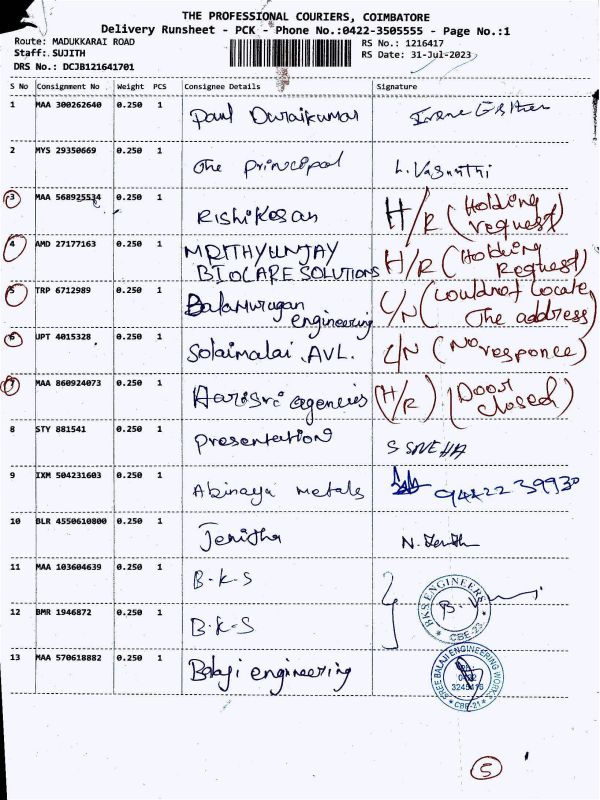 THE PROFESSIONAL COURIERS, COIMBATORE
Delivery Runsheet - PCK - Phone No.:0422-3505555 - Page No.:1
Route: MADUKKARAI ROAD
RS No.: 1216417
Staff: SUJITH
RS Date: 31-Jul-2023
DRS No.: DCJB121641701
S No Consignment No Weight PCS Consignee Details Signature
1 MAA 300262640 0.250 1 Paul Duraikumar Irene Esther
2 MYS 29350669 0.250 1 The Principal L. Vasunthi
3 MAA 568925534 0.250 1 Rishikesan H/R (Holding
request)
4 AMD 27177163 0.250 1 MRITHYUNJAY H/R (Holding
BIOCARE SOLUTIONS Request)
5 TRP 6712989 0.250 1 Balamurugan C/N (Couldnot locate
engineering The address)
6 UPT 4015328 0.250 1 Solaimalai AVL. C/N (No responce)
7 MAA 860924073 0.250 1 Harisri agencies (H/R) (Door
closed)
8 STY 881541 0.250 1 Presentation S SNEHA
9 IXM 504231603 0.250 1 Abinaya metals 94422 39930
10 BLR 4550610800 0.250 1 Jenitha N.
11 MAA 103604639 0.250 1 B.K.S
BKS ENGINEERS
CBE-23
12 BMR 1946872 0.250 1 B.K.S
13 MAA 570618882 0.250 1 Balaji engineering
SREE BALAJI ENGINEERING WORKS
0422
3245416
CBE-21
5